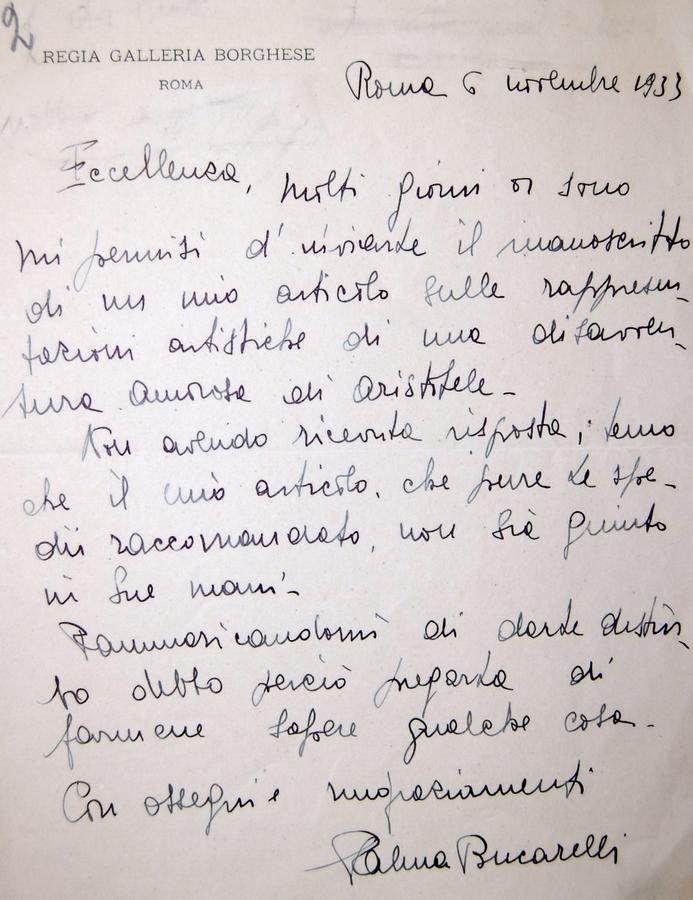 2
REGIA GALLERIA BORGHESE
ROMA
Roma 6 novembre 1933
Eccellenza, molti giorni or sono
mi permisi d'inviarle il manoscritto
di un mio articolo sulle rappresen_
tazioni artistiche di una disavven_
tura amorosa di Aristotele_
Non avendo ricevuta risposta, temo
che il mio articolo, che pure Le spe_
dii raccomandato, non sia giunto
in Sue mani_
Rammaricandomi di darle distur_
bo debbo perciò pregarla di
farmene sapere qualche cosa_
Con ossequi e ringraziamenti
Palma Bucarelli